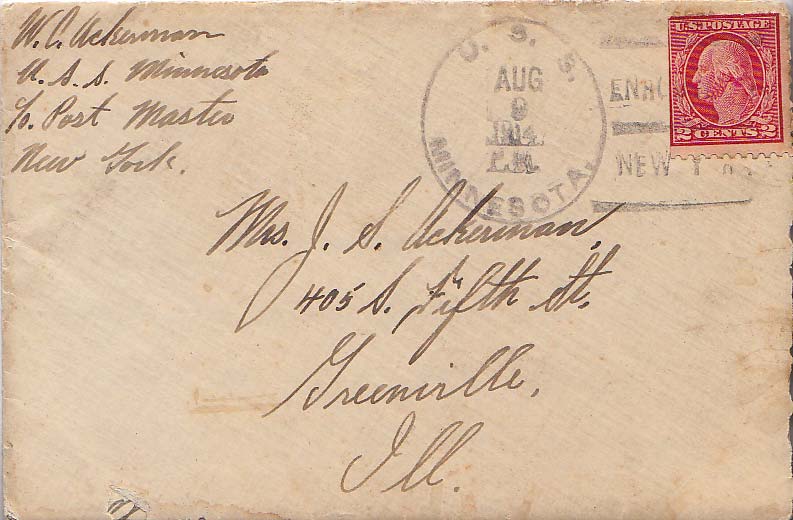 W. C. Ackerman
U. S. S. Minnesota
c/o. Post Master
New York.
U. S. S.
AUG
9
1914
P.M.
MINNESOTA.
NEW
U.S. POSTAGE
2 CENTS 2
Mrs. J. S. Ackerman,
405 S. Fifth St.
Greenville,
Ill.